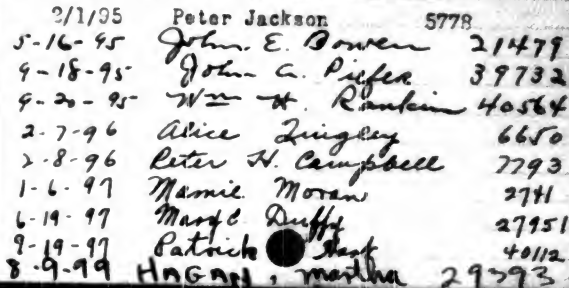 2/1/95 Peter Jackson 5778
5-16-95 John. E. Bowen 21479
9-18-95 John G. Piefer 39732
9-20-95 Wm H. Rankin 40564
2-7-96 Alice Tingley 6650
2-8-96 Peter H. Campbell 7793
1-6-97 Mamie Moran 2741
6-19-97 Mary C. Duffy 27951
9-19-97 Patrick 40112
8-9-99 HAGAN, Martha 29393